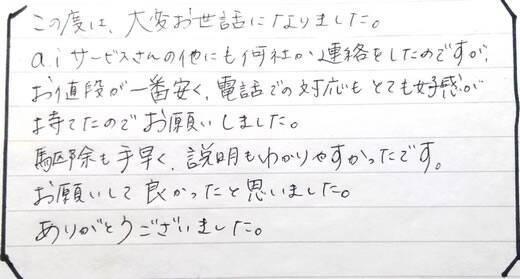 この度は、大変お世話になりました。
a.iサービスさんの他にも何社か連絡をしたのですが、
お値段が一番安く、電話での対応もとても好感が
持てたのでお願いしました。
駆除も手早く、説明もわかりやすかったです。
お願いして良かったと思いました。
ありがとうございました。